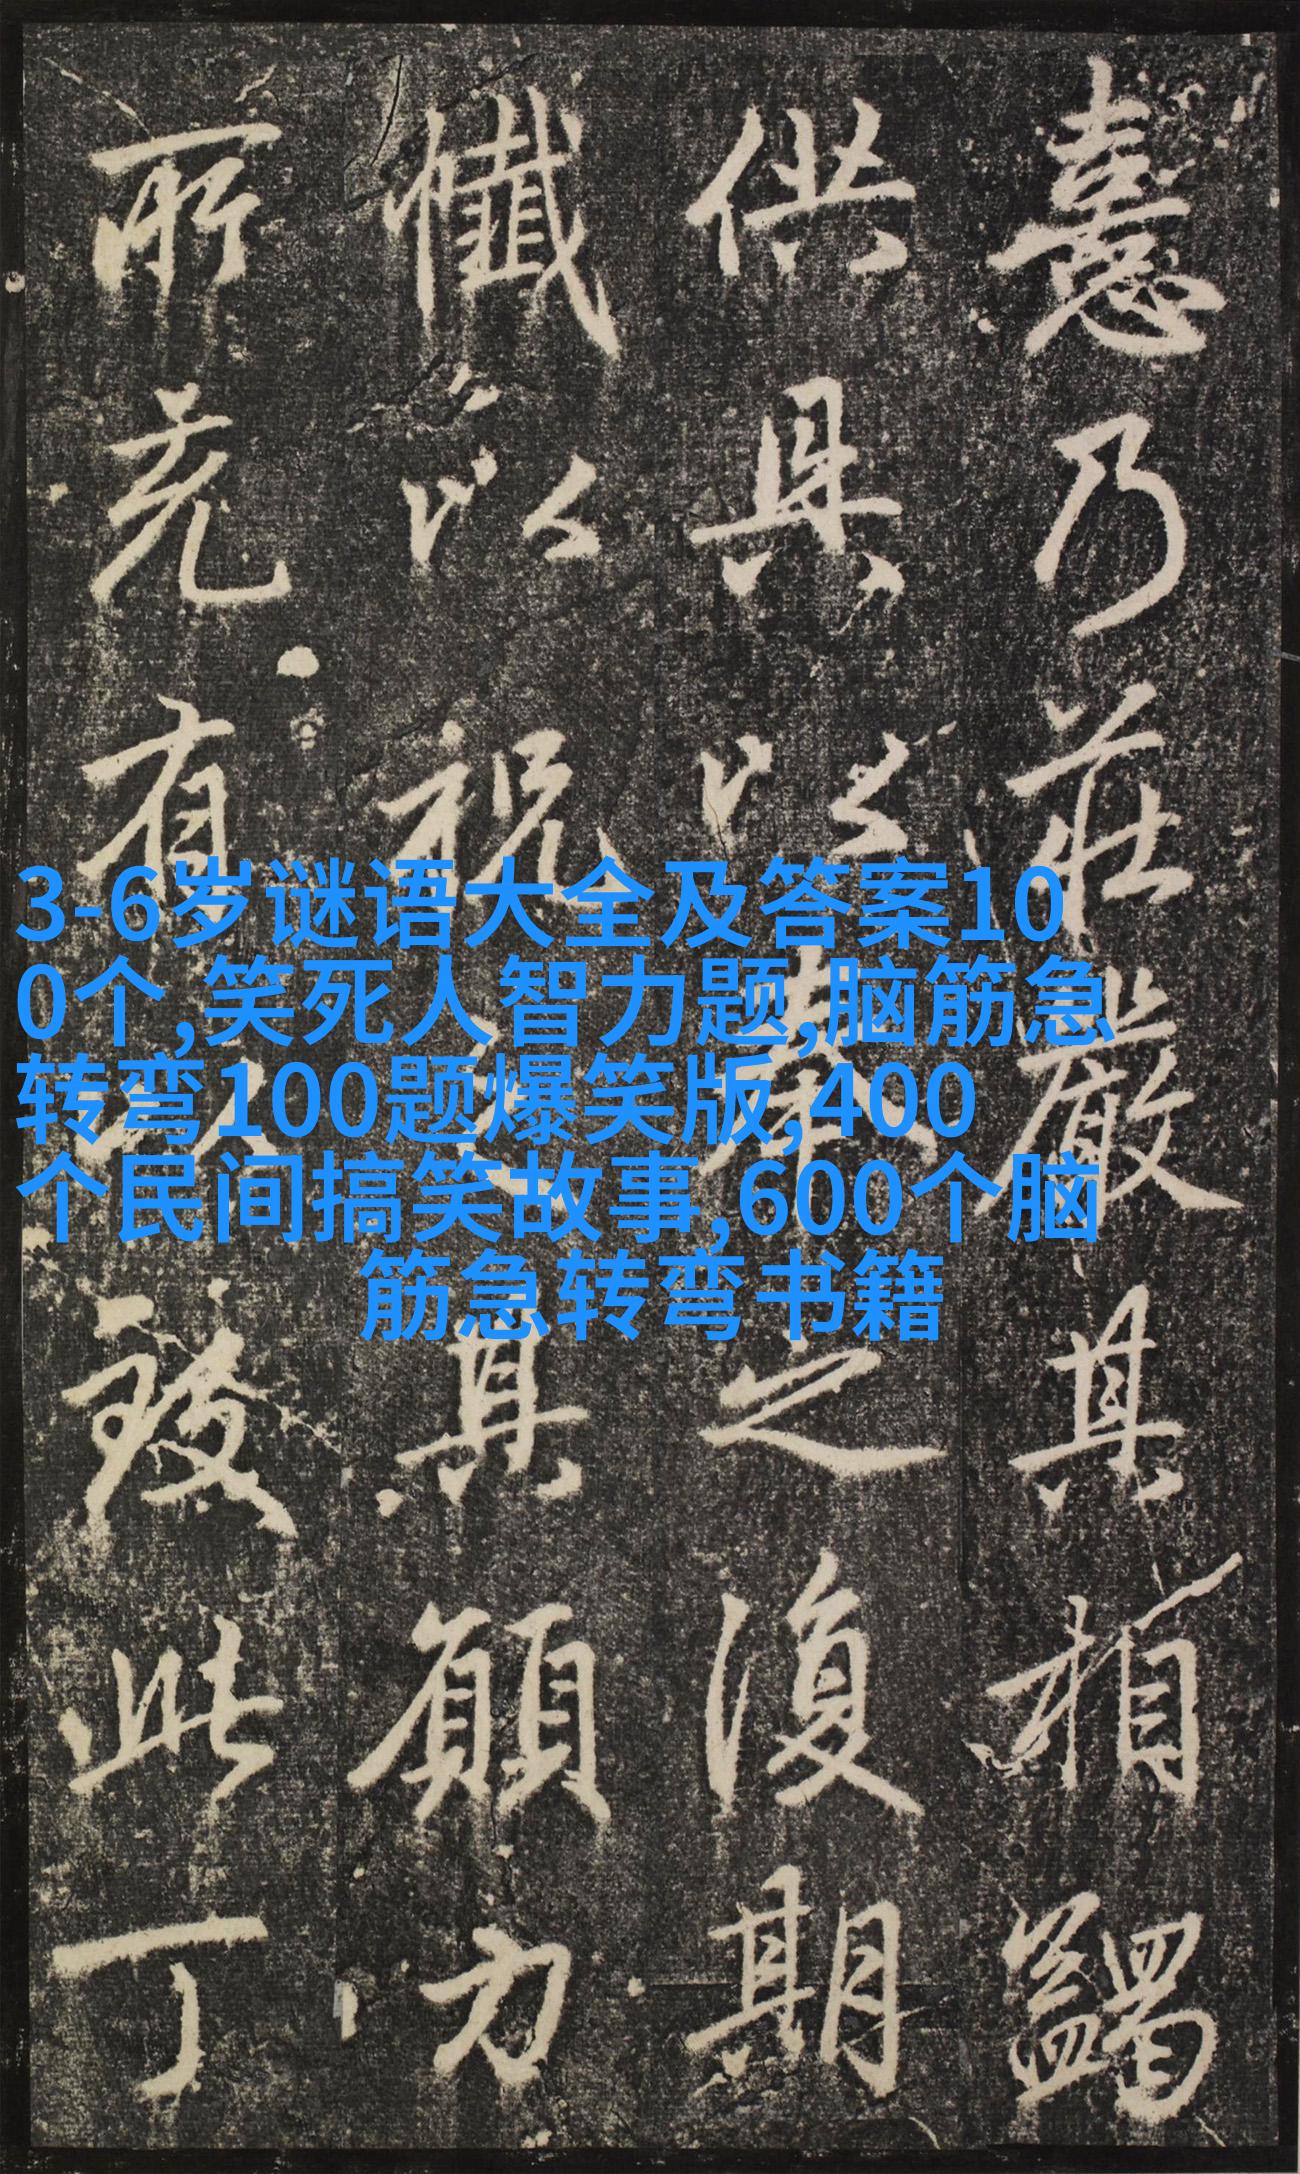 3-6岁谜语大全及答案10
0个,笑死人智力题,脑筋急
转弯100题爆笑版,400
个民间搞笑故事,600个脑
筋急转弯书籍
憙乃莊嚴其相蠲
供具以之復期
懺以祝其願力
所有此丁